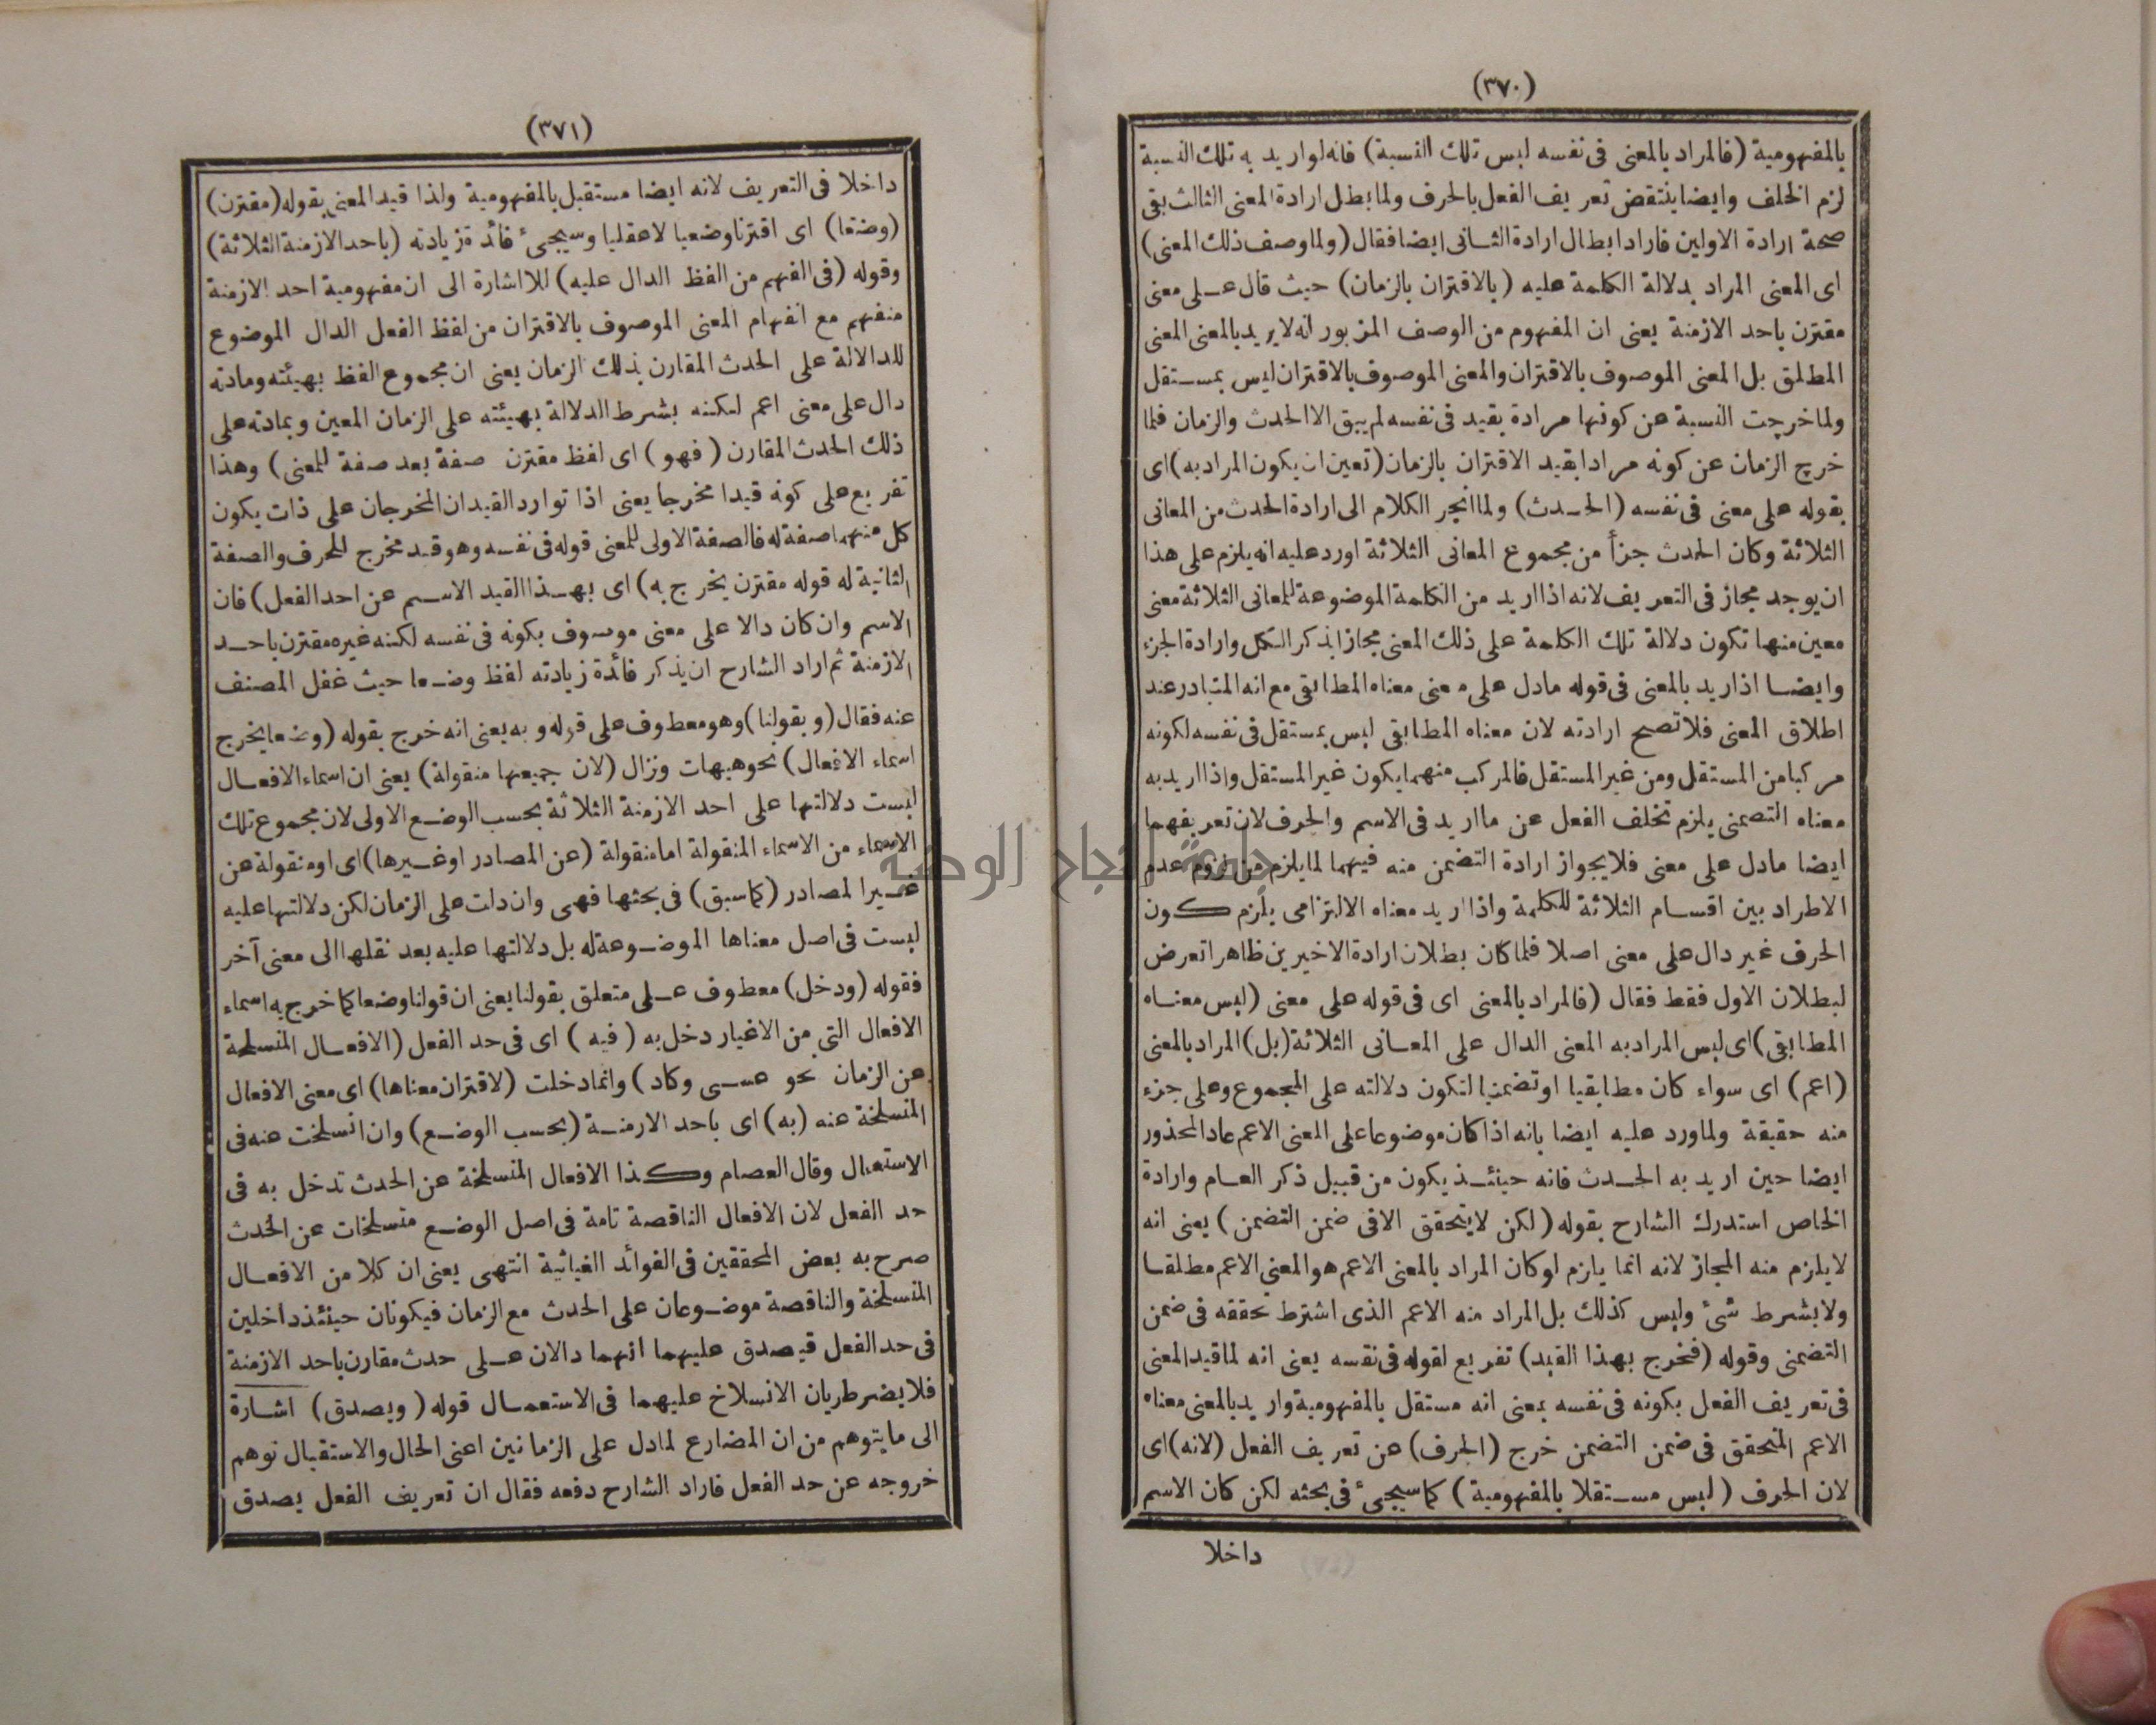 (٣٧٠)
بالمفهومية (فالمراد بالمعنى فى نفسه ليس تلك النسبة) فانه لو اريد به تلك النسبة
لزم الخلف وايضا ينتقض تعريف الفعل بالحرف ولما بطل ارادة المعنى الثالث بقى
صحة ارادة الاولين فاراد ابطال ارادة الثانى ايضا فقال (ولما وصف ذلك المعنى)
اى المعنى المراد بدلالة الكلمة عليه (بالاقتران بالزمان) حيث قال على معنى
مقترن باحد الازمنة يعنى ان المفهوم من الوصف المزبور انه لا يريد بالمعنى المعنى
المطلق بل المعنى الموصوف بالاقتران والمعنى الموصوف بالاقتران ليس بمستقل
ولما خرجت النسبة عن كونها مرادة بقيد فى نفسه لم يبق الا الحدث والزمان فلما
خرج الزمان عن كونه مرادا بقيد الاقتران بالزمان (تعين ان يكون المراد به) اى
بقوله على معنى فى نفسه (الحدث) ولما انجر الكلام الى ارادة الحدث من المعانى
الثلاثة وكان الحدث جزأ من مجموع المعانى الثلاثة اورد عليه انه يلزم على هذا
ان يوجد مجاز فى التعريف لانه اذا اريد من الكلمة الموضوعة للمعانى الثلاثة معنى
معين منها تكون دلالة تلك الكلمة على ذلك المعنى مجازا بذكر الكل وارادة الجزء
وايضا اذا ريد بالمعنى فى قوله مادل على معنى معناه المطابقى مع انه المتبادر عند
اطلاق المعنى فلا تصح ارادته لان معناه المطابقى ليس بمستقل فى نفسه لكونه
مركبا من المستقل ومن غير المستقل فالمركب منهما يكون غير المستقل واذا اريد به
معناه التضمنى يلزم تخلف الفعل عن ما اريد فى الاسم والحرف لان تعريفهما
ايضا مادل على معنى فلا يجواز ارادة التضمن منه فيهما لما يلزم من لزوم عدم
الاطراد بين اقسام الثلاثة للكلمة واذا اريد معناه الالتزامى يلزم كون
الحرف غير دال على معنى اصلا فلما كان بطلان ارادة الاخيرين ظاهرا تعرض
لبطلان الاول فقط فقال (فالمراد بالمعنى اى فى قوله على معنى (ليس معناه
المطابقى) اى ليس المراد به المعنى الدال على المعانى الثلاثة (بل) المراد بالمعنى
(اعم) اى سواء كان مطابقيا او تضمنيا لتكون دلالته على المجموع وعلى جزء
منه حقيقة ولما ورد عليه ايضا بانه اذا كان موضوعا على المعنى الاعم عاد المحذور
ايضا حين اريد به الحدث فانه حينئذ يكون من قبيل ذكر العام وارادة
الخاص استدرك الشارح بقوله (لكن لا يتحقق الا فى ضمن التضمن) يعنى انه
لا يلزم منه المجاز لانه انما يلزم لو كان المراد بالمعنى الاعم هو المعنى الاعم مطلقا
ولا بشرط شئ وليس كذلك بل المراد منه الاعم الذى اشترط تحققه فى ضمن
التضمنى وقوله (فخرج بهذا القيد) تفريع لقوله فى نفسه يعنى انه لما قيد المعنى
فى تعريف الفعل بكونه فى نفسه بمعنى انه مستقل بالمفهومية واريد بالمعنى معناه
الاعم المتحقق فى ضمن التضمن خرج (الحرف) عن تعريف الفعل (لانه) اى
لان الحرف (ليس مستقلا بالمفهومية) كما سيجئ فى بحثه لكن كان الاسم
داخلا
(٣٧١)
داخلا فى التعريف لانه ايضا مستقبل بالمفهومية ولذا قيد المعنى بقوله (مقترن)
(وضعا) اى اقترنا وضعيا لا عقليا وسيجئ فائدة زيادته (باحد الازمنة الثلاثة)
وقوله (فى الفهم من الفظ الدال عليه) للا اشارة الى ان مفهومية احد الازمنة
منفهم مع انفهام المعنى الموصوف بالاقتران من لفظ الفعل الدال الموضوع
للدالالة على الحدث المقارن بذلك الزمان يعنى ان مجموع الفظ بهيئته ومادته
دال على معنى اعم لكنه بشرط الدلالة بهيئته على الزمان المعين وبمادته على
ذلك الحدث المقارن (فهو) اى لفظ مقترن صفة بعد صفة للمعنى) وهذا
تفريع على كونه قيدا مخرجا يعنى اذا توارد القيدان المخرجان على ذات يكون
كل منهما صفة له فالصفة الاولى للمعنى قوله فى نفسه وهو قيد مخرج للحرف والصفة
الثانية له قوله مقترن يخرج به) اى بهذا القيد الاسم عن احد الفعل) فان
الاسم وان كان دالا على معنى موصوف بكونه فى نفسه لكنه غيره مقترن باحد
الازمنة ثم اراد الشارح ان يذكر فائدة زيادته لفظ وضعا حيث غفل المصنف
عنه فقال (وبقولنا) وهو معطوف على قوله وبه يعنى انه خرج بقوله (وضعا يخرج
اسماء الافعال) نحو هيهات ونزال (لان جميعها منقولة) يعنى ان اسماء الافعال
ليست دلالتها على احد الازمنة الثلاثة بحسب الوضع الاولى لان مجموع تلك
الاسماء من الاسماء المنقولة اما منقولة (عن المصادر او غيرها) اى او منقولة عن
غير المصادر (كما سبق) فى بحثها فهى وان دلت على الزمان لكن دلالتها عليه
ليست فى اصل معناها الموضوعة له بل دلالتها عليه بعد نقلها الى معنى آخر
فقوله (ودخل) معطوف على متعلق بقولنا يعنى ان قولنا وضعا كما خرج به اسماء
الافعال التى من الاغيار دخل به (فيه) اى فى حد الفعل (الافعال المنسلخة
عن الزمان نحو عسى وكاد) وانما دخلت (لاقتران معناها) اى معنى الافعال
المنسلخة عنه (به) اى باحد الازمنة (بحسب الوضع) وان انسلخت عنه فى
الاستعمال وقال العصام وكذا الافعال المنسلخة عن الحدث تدخل به فى
حد الفعل لان الافعال الناقصة تامة فى اصل الوضع منسلخات عن الحدث
صرح به بعض المحققين فى الفوائد الغياثية انتهى يعنى ان كلا من الافعال
المنسلخة والناقصة موضوعان على الحدث مع الزمان فيكونان حينئذ داخلين
فى حد الفعل فيصدق عليهما انهما دالان على حدث مقارن باحد الازمنة
فلا يضر طريان الانسلاخ عليهما فى الاستعمال قوله (ويصدق) اشارة
الى ما يتوهم من ان المضارع لما دل على الزمانين اعنى الحال والاستقبال توهم
خروجه عن حد الفعل فاراد الشارح دفعه فقال ان تعريف الفعل يصدق
جامعة النجاح الوطنية